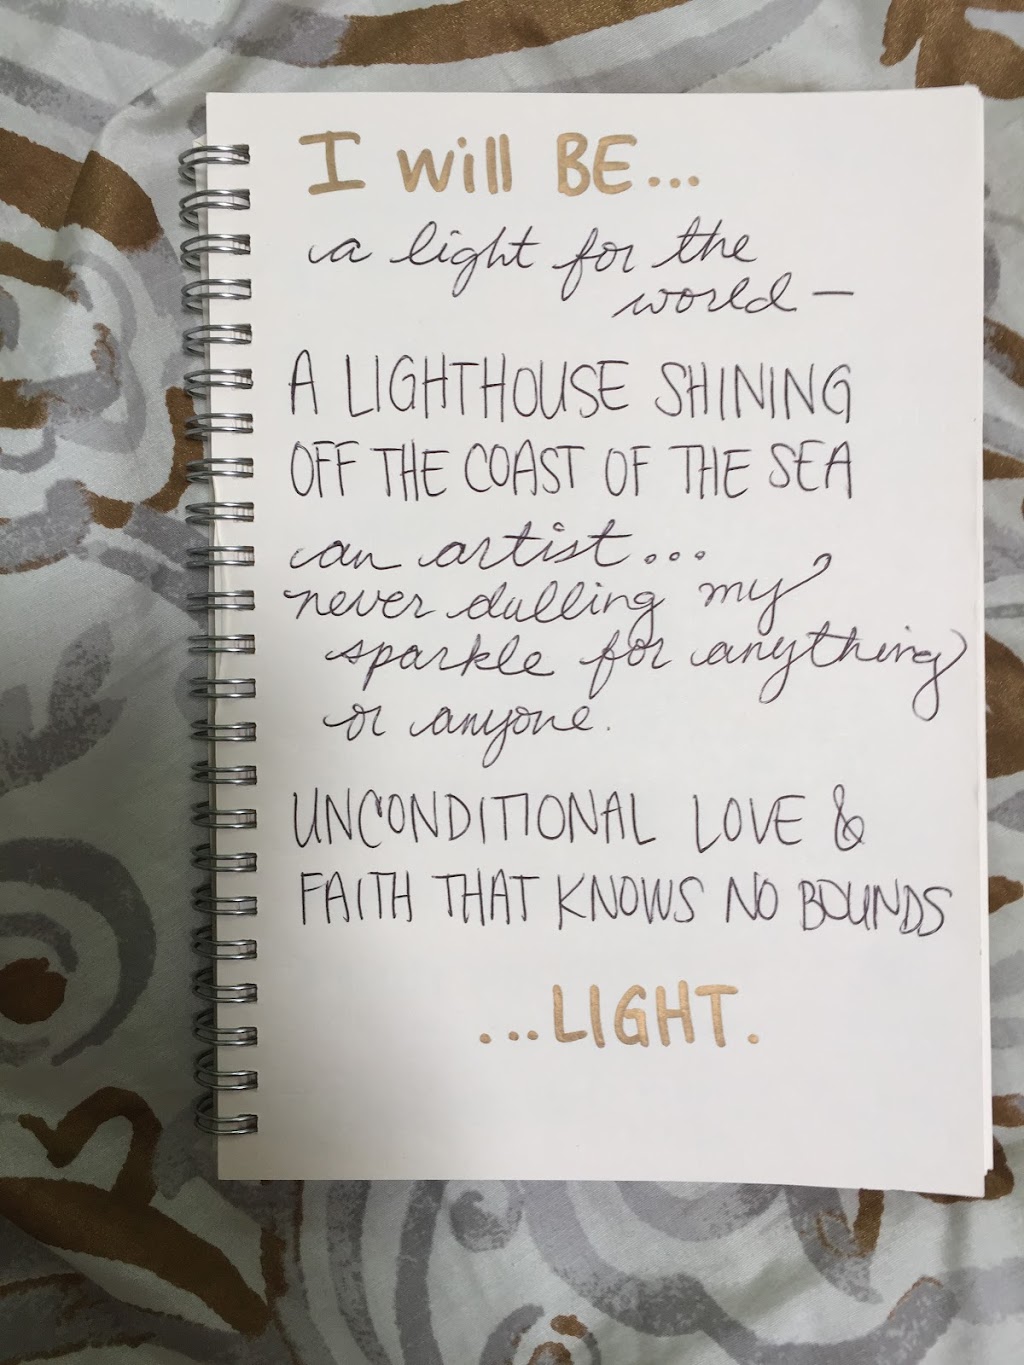 I will BE...
a light for the
world —
A LIGHTHOUSE SHINING
OFF THE COAST OF THE SEA
an artist...
never dulling my
sparkle for anything
or anyone.
UNCONDITIONAL LOVE &
FAITH THAT KNOWS NO BOUNDS
...LIGHT.